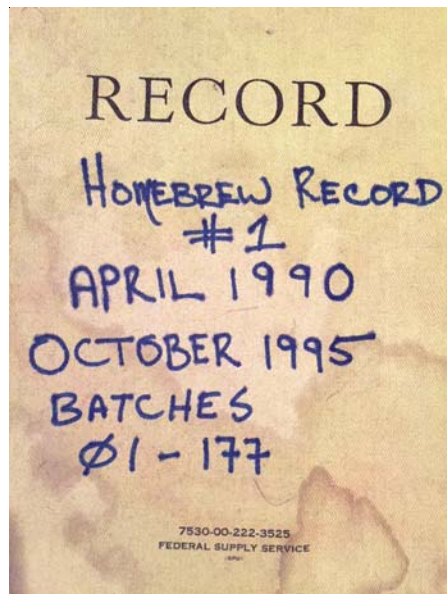 RECORD
HOMEBREW RECORD
#1
APRIL 1990
OCTOBER 1995
BATCHES
Ø1 - 177
7530-00-222-3525
FEDERAL SUPPLY SERVICE